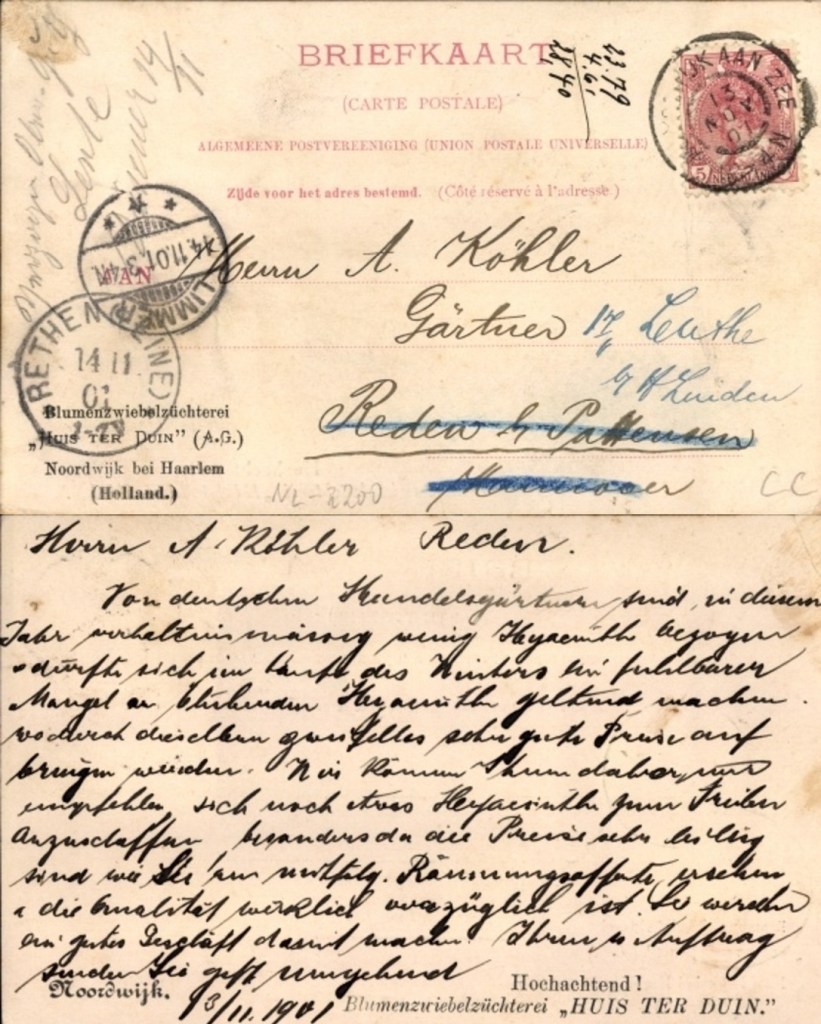 BRIEFKAART
(CARTE POSTALE)
ALGEMEENE POSTVEREENIGING (UNION POSTALE UNIVERSELLE)
Zijde voor het adres bestemd. (Côté réservé à l'adresse.)
23.79
4.61
28.40
AAN ZEE
13 NOV 01
5
14/11
14.11.01.3-4N.
LIMMER
AAN
RETHEN
14 11
01
Herrn A. Köhler
Gärtner 17, Leuthe
b/ H Linden
Reden b/ Pattensen
Hannover
Blumenzwiebelzüchterei
„Huis ter Duin" (A.G.)
Noordwijk bei Haarlem
(Holland.)
NL-2200
CC
Herrn A. Köhler Reden.
Von deutschen Handelsgärtnern sind in diesem
Jahr verhältnismässig wenig Hyacinth bezogen
& dürfte sich im Laufe des Winters ein fühlbarer
Mangel an blühenden Hyacinthe geltend machen
wodurch dieselben zweifellos sehr gute Preise auf
bringen werden. Wir können Ihnen daher nur
empfehlen, sich noch etwas Hyacinthe zum Treiben
anzuschaffen, besonders da die Preise sehr billig
sind wie Sie am mitfolg. Räumungsofferte ersehen
& die Qualität wirklich vorzüglich ist. Sie werden
ein gutes Geschäft damit machen. Ihren w Auftrag
senden Sie gefl umgehend
Hochachtend!
Noordwijk. 13/11. 1901 Blumenzwiebelzüchterei „HUIS TER DUIN."